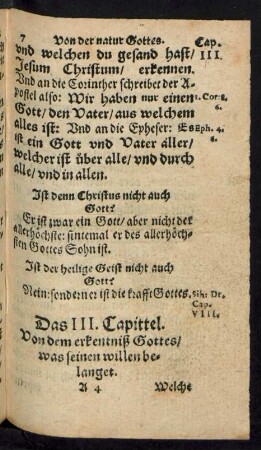 7 Von der natur Gottes. Cap.
vnd welchen du gesand hast/ III.
Jesum Christum/ erkennen.
Vnd an die Corinther schreibet der A-
postel also: Wir haben nur einen 1. Cor: 8.
Gott/ den Vater/ aus welchem 6.
alles ist: Vnd an die Epheser: Es Eph. 4.
ist ein Gott vnd Vater aller/ 6.
welcher ist über alle/ vnd durch
alle/ vnd in allen.
Ist denn Christus nicht auch
Gott?
Er ist zwar ein Gott/ aber nicht der
allerhöchste: sintemal er des allerhöch-
sten Gottes Sohn ist.
Ist der heilige Geist nicht auch
Gott?
Nein: sondern er ist die krafft Gottes. Sih: Dr.
Cap.
VIII.
Das III. Capittel.
Von dem erkentniß Gottes/
was seinen willen be-
langet.
A 4 Welche